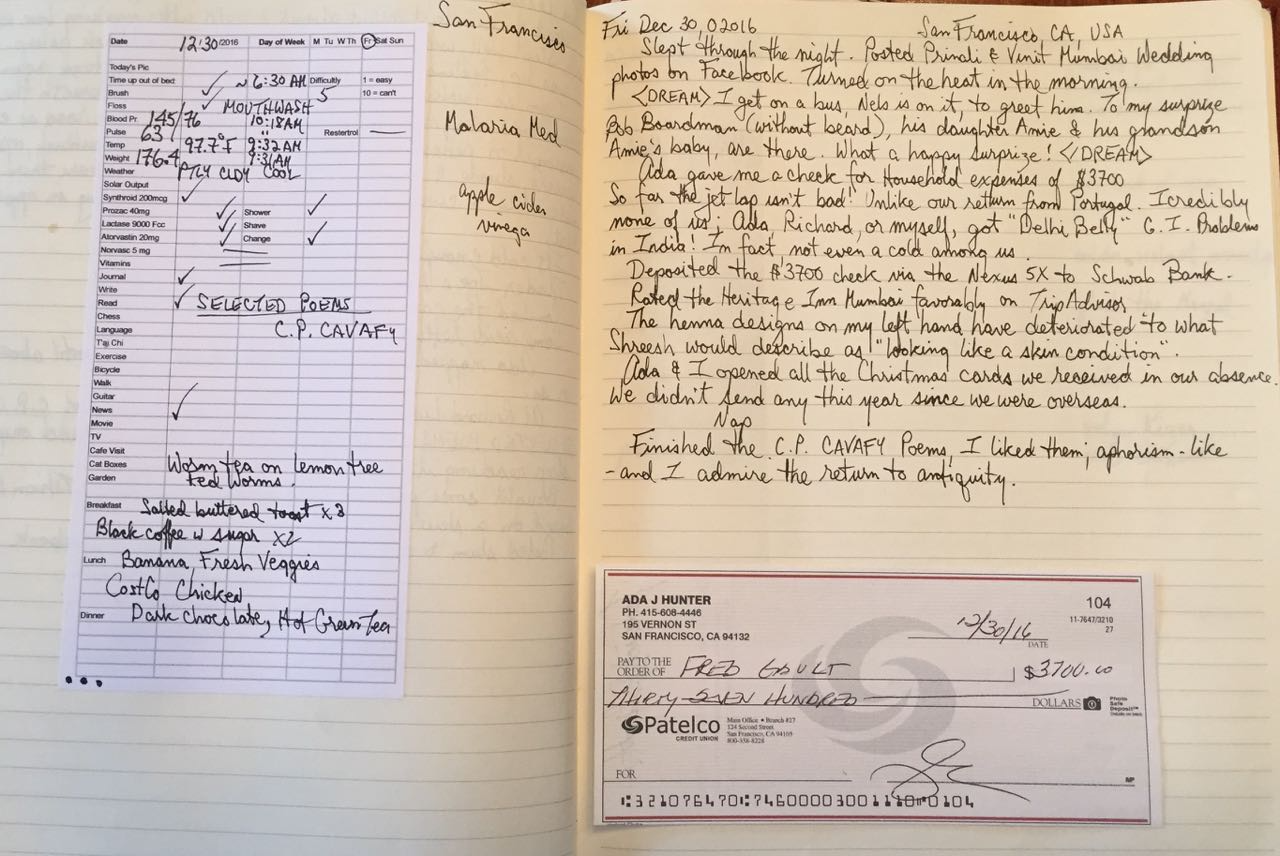 San Francisco
Malaria Med
apple cider
vinega
Date 12:30/2016 Day of Week M Tu W Th Fr Sat Sun
Today's Pic
Time up out of bed: ~ 6:30 AM Difficultly 5 1 = easy
Brush 10 = can't
Floss MOUTHWASH
Blood Pr. 145/76 10:18AM
Pulse 63 " Restertrol
Temp 97.7°F 9:32AM
Weight 176.4 9:31AM
Weather PTLY CLDY COOL
Solar Output
Synthroid 200mcg
Prozac 40mg Shower
Lactase 9000 Fcc Shave
Atorvastin 20mg Change
Norvasc 5 mg
Vitamins
Journal
Write
Read SELECTED POEMS
Chess
Language C.P. CAVAFY
T'ai Chi
Exercise
Bicycle
Walk
Guitar
News
Movie
TV
Cafe Visit
Cat Boxes Worm tea on lemon tree
Garden Fed Worms.
Breakfast Salted buttered toast x3
Black coffee w sugar x2
Lunch Banana, Fresh Veggies
Costco Chicken
Dinner Dark chocolate, Hot Green tea
Fri Dec 30, 02016 San Francisco, CA, USA
Slept through the night. Posted Prinali & Vinit Mumbai Wedding
photos on Facebook. Turned on the heat in the morning.
<DREAM> I get on a bus, Nels is on it, to greet him. To my surprize
Bob Boardman (without beard), his daughter Amie & his grandson
Amie's baby, are there. What a happy surprize! </DREAM>
Ada gave me a check for Household expenses of $3700
So far the jet lap isn't bad! Unlike our return from Portugal. Icredibly
none of us; Ada, Richard, or myself, got "Delhi Belly" G.I. Problems
in India! In fact, not even a cold among us.
Deposited the $3700 check via the Nexus 5X to Schwab Bank.
Rated the Heritage Inn Mumbai favorably on TripAdvisor
The henna designs on my left hand have deteriorated to what
Shreesh would describe as "looking like a skin condition".
Ada & I opened all the Christmas cards we received in our absence.
We didn't send any this year since we were overseas.
Nap
Finished the C.P. CAVAFY Poems, I liked them; aphorism-like
-and I admire the return to antiquity.
ADA J HUNTER 104
PH. 415-608-4446 11-7647/3210
195 VERNON ST 27
SAN FRANCISCO, CA 94132
12/30/16
DATE
PAY TO THE
ORDER OF FRED GAULT $3700.00
THIRTY SEVEN HUNDRED DOLLARS Photo Safe Deposit
Patelco
CREDIT UNION
Main Office • Branch #27
124 Second Street
San Francisco, CA 94105
800-358-8228
FOR MP
321076470 7460000300111 0104